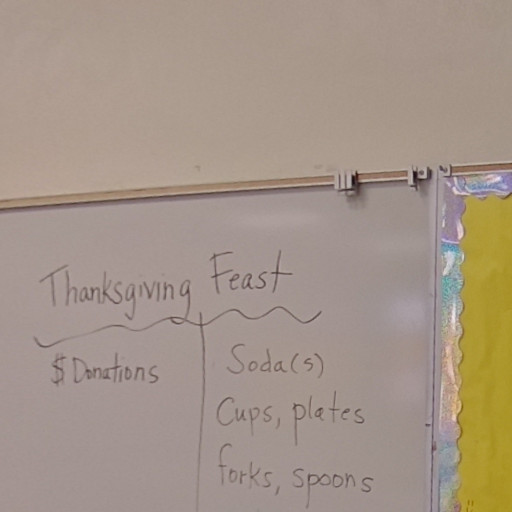 Thanksgiving Feast
$ Donations
Soda(s)
Cups, plates
forks, spoons